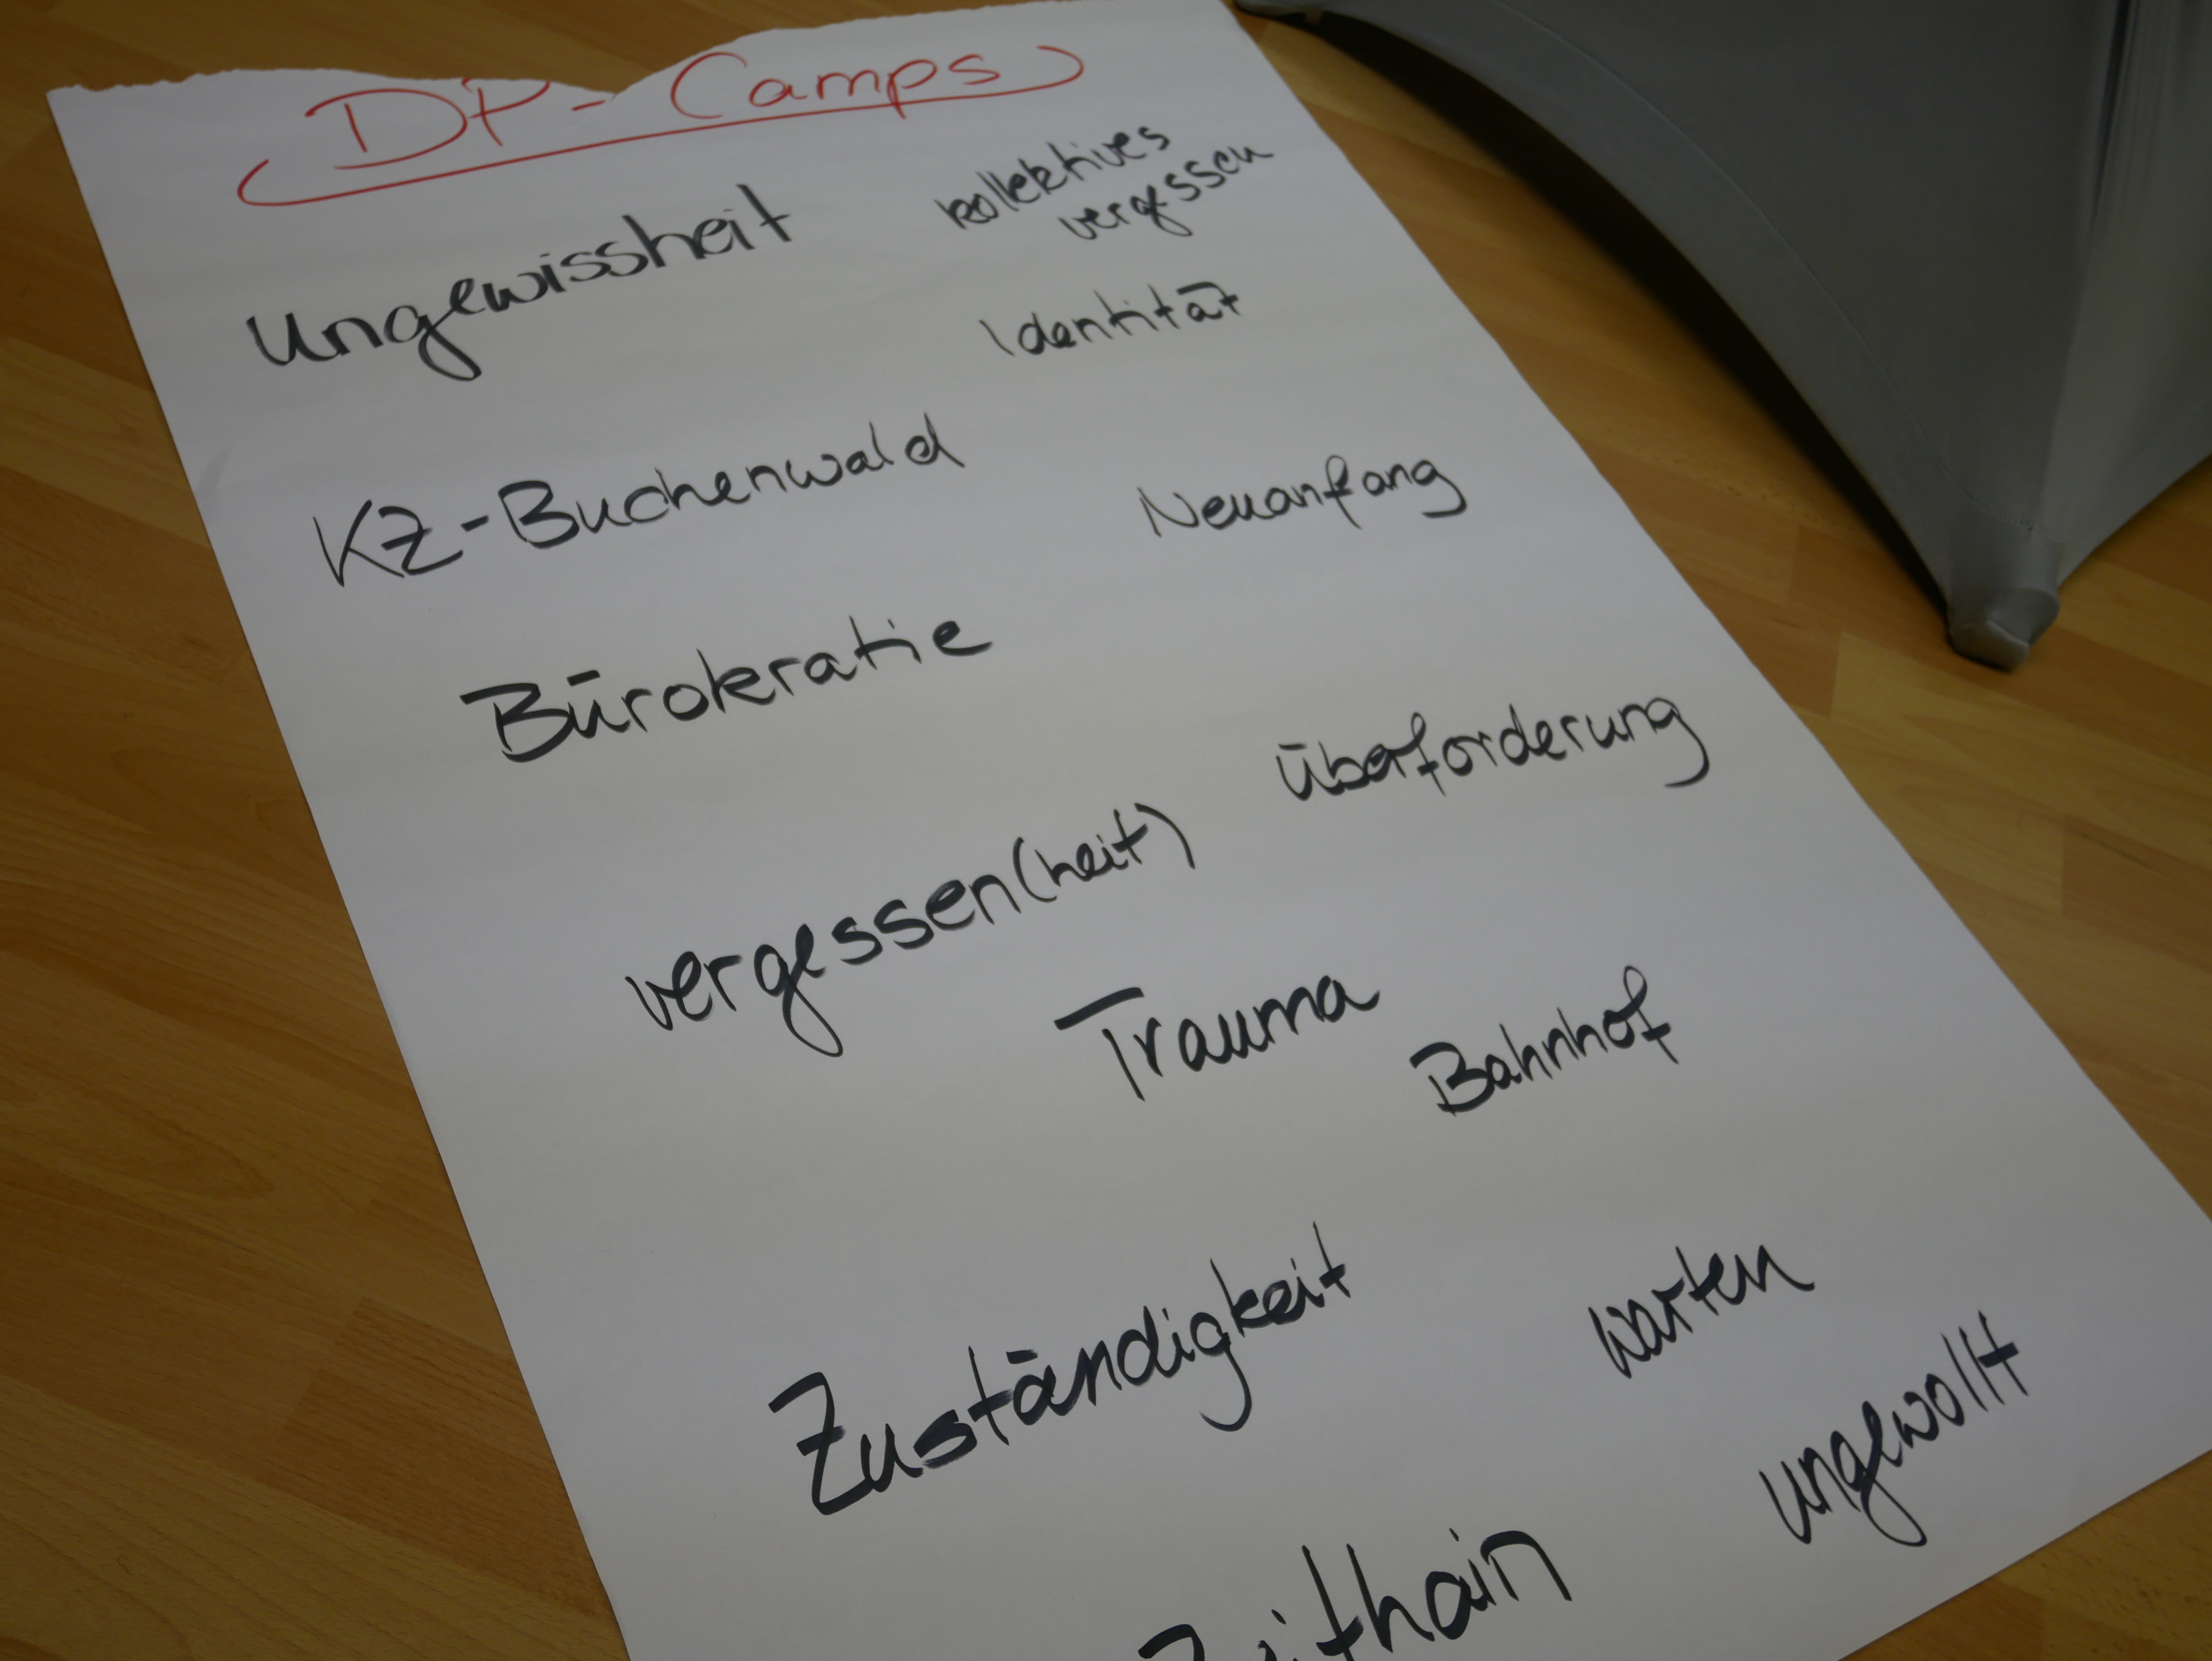 DP-Camps
Ungewissheit
kollektives
vergessen
Identität
KZ-Buchenwald
Neuanfang
Bürokratie
Überforderung
vergessen(heit)
Trauma
Bahnhof
Zuständigkeit
warten
ungewollt
Zeithain